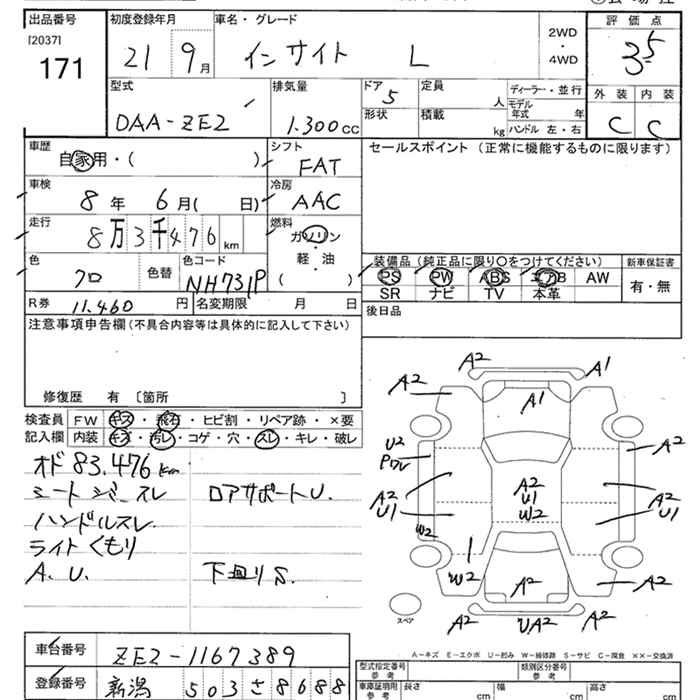 出品番号
[2037]
171
初度登録年月
21 9月
車名・グレード
インサイト L
2WD
・
4WD
評価点
3.5
外装 内装
C C
型式
DAA-ZE2
排気量
1.300cc
ドア 5
形状
定員 人
積載 kg
ディーラー・並行
モデル年式 年
ハンドル 左・右
車歴
自家用・( )
シフト
FAT
セールスポイント(正常に機能するものに限ります)
車検
8年 6月( 日)
冷房
AAC
走行
8万3千476km
燃料
ガソリン
軽・油
( )
色
クロ
色替
色コード
NH731P
装備品(純正品に限り〇をつけてください)
PS PW ABS エアB AW
SR ナビ TV 本革
新車保証書
有・無
R券 11.460円
名変期限 月 日
後日品
注意事項申告欄(不具合内容等は具体的に記入して下さい)
修復歴 有 〔箇所 〕
検査員記入欄
FW キズ・飛石・ヒビ割・リペア跡・×要
内装 キズ・汚レ・コゲ・穴・スレ・キレ・破レ
オド 83.476km
シートジャースレ ロアサポートU.
ハンドルスレ
ライトくもり
A.U. 下回りS.
A2
A1
A2
A1
U2
Pワレ
A2
A2
U1
A2
U1
W2
A2
U1
W2
W2
A2
A2
A2
UA2
A2
スペア
A-キズ E-エクボ U-凹み W-補修跡 S-サビ C-腐食 ××-交換済
車台番号
ZE2-1167389
登録番号
新潟 503さ8688
型式指定番号
参考
類別区分番号
参考
車庫証明用
参考
長さ cm
幅 cm
高さ cm